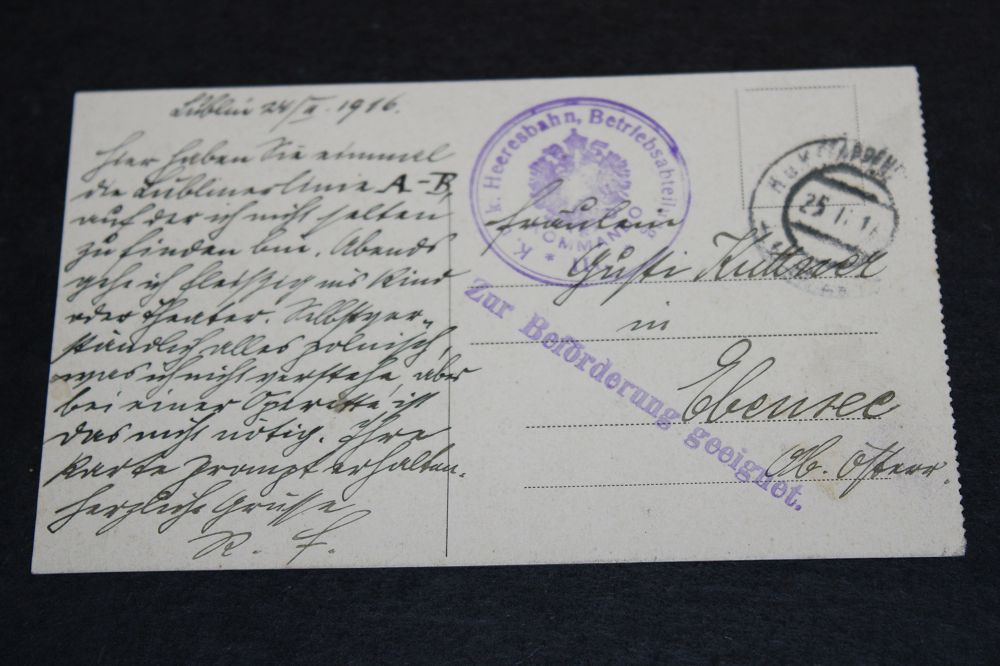 Lublin 24/II. 1916.
Hier haben Sie einmal
die Lublinerlinie A-B,
auf der ich nicht selten
zu finden bin. Abends
gehe ich fleissig ins Kino
oder Theater. Selbstver-
ständlich alles polnisch,
was ich nicht verstehe, aber
bei einer Operette ist
das nicht nötig. Ihre
Karte prompt erhalten.
Herzliche Grüsse
R. F.
K. k. Heeresbahn, Betriebsabteil
KOMMANDO
Fräulein
Gusti
in
Ebensee
Ob. Österr.
Zur Beförderung geeignet.
25